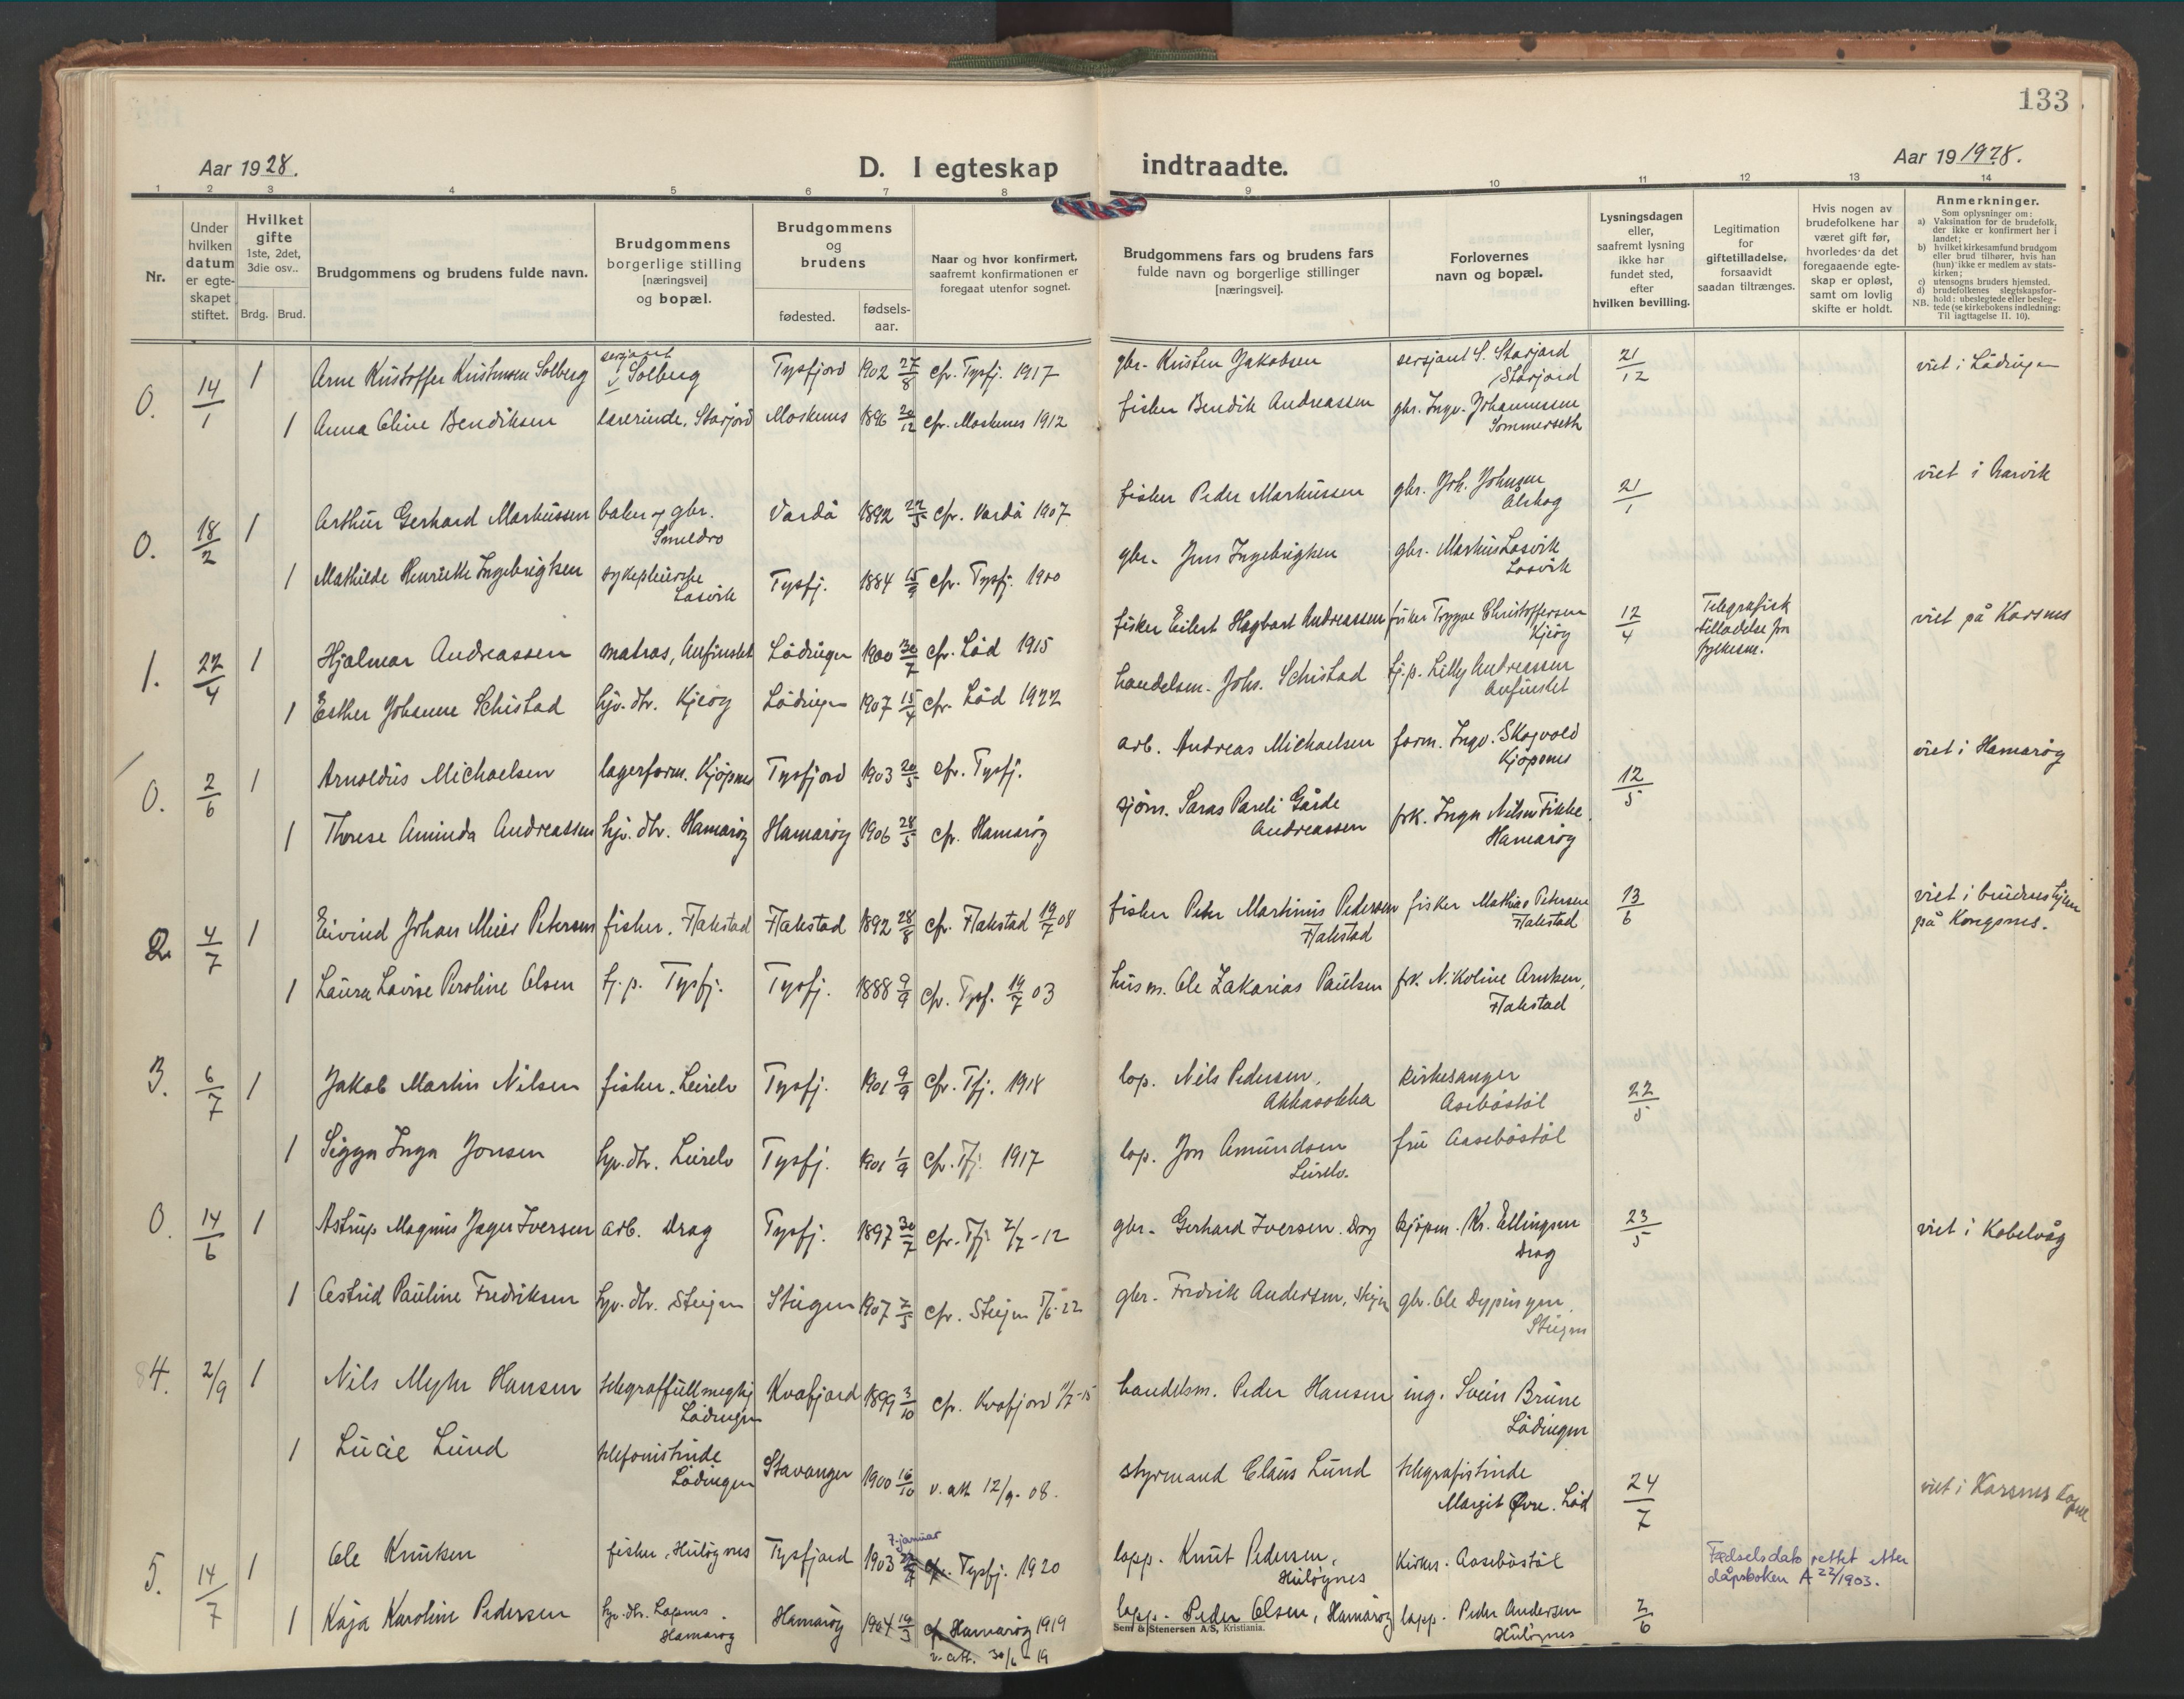 133
Aar 1928.
D. I egteskap indtraadte.
Aar 19 1928.
1 2 3 4 5 6 7 8 9 10 11 12 13 14
Nr.
Under hvilken datum er egteskapet stiftet.
Hvilket gifte 1ste, 2det, 3die osv..
Brdg. Brud.
Brudgommens og brudens fulde navn.
Brudgommens borgerlige stilling [næringsvei] og bopæl.
Brudgommens og brudens
fødested.
fødselsaar.
Naar og hvor konfirmert, saafremt konfirmationen er foregaat utenfor sognet.
Brudgommens fars og brudens fars fulde navn og borgerlige stillinger [næringsvei].
Forlovernes navn og bopæl.
Lysningsdagen eller, saafremt lysning ikke har fundet sted, efter hvilken bevilling.
Legitimation for giftetilladelse, forsaavidt saadan tiltrænges.
Hvis nogen av brudefolkene har været gift før, hvorledes da det foregaaende egteskap er opløst, samt om lovlig skifte er holdt.
Anmerkninger.
Som oplysninger om:
a) Vaksination for de brudefolk, der ikke er konfirmert her i landet;
b) hvilket kirkesamfund brudgom eller brud tilhører, hvis han (hun) ikke er medlem av statskirken;
c) utensogns bruders hjemsted.
d) brudefolkenes slegtskapsforhold: ubeslegtede eller beslegtede (se kirkebokens indledning:
NB. Til iagttagelse II. 10).
0. 14/1 1 Arne Kristoffer Kristensen Solberg sersjant Solberg Tysfjord 1902 27/8 cfr. Tysfj. 1917 gbr. Kristen Jakobsen sersjant S. Storjord Storjord 21/12 viet i Lödingen
1 Anna Oline Bendiksen lærerinde, Storjord Moskenes 1896 20/12 cfr. Moskenes 1912 fisker Bendik Andreassen gbr. Ingv. Johannessen Sommerseth
0. 18/2 1 Arthur Gerhard Markussen baker og gbr. Vardö 1892 22/5 cfr. Vardö 1907 fisker Peder Markussen gbr. Joh. Johnsen 21/1 viet i Narvik
1 Mathilde Henriette Ingebrigtsen sykepleierske Losvik Tysfj. 1884 15/9 cfr. Tysfj. 1900 gbr. Jens Ingebrigtsen gbr. Markus Losvik Losvik
1. 22/4 1 Hjalmar Andreassen matros, Anfinslet Lödingen 1900 30/7 cfr. Löd 1915 fisker Eilert Hagbart Andreassen fisker Trygve Christoffersen Kjeöy 12/4 Telegrafisk tilladelse fra fylkesm. viet på Korsnes
1 Esther Johanne Schistad hjv. dtr. Kjeöy Lödingen 1907 15/4 cfr. Löd 1922 handelsm. Johs. Schistad hj. p. Lilly Andreassen Anfinslet
0. 2/6 1 Arnoldus Michaelsen lagerform. Kjöpsnes Tysfjord 1903 20/5 cfr. Tysfj. arb. Andreas Michaelsen form. Ingv. Skogvold Kjöpsnes 12/5 viet i Hamaröy
1 Therese Aminda Andreassen hjv. dtr. Hamaröy Hamaröy 1906 28/5 cfr. Hamaröy sjöm. Andreassen frk. Inga Nilsen Hamaröy
2. 4/7 1 Eivind Johan Meier Petersen fisker, Flakstad Flakstad 1892 28/8 cfr. Flakstad 19/7 08 fisker Peter Martinus Pedersen Flakstad fisker Mathias Petersen Flakstad 13/6 viet i brudens hjem på Kongsnes.
1 Laura Lovise Peroline Olsen hj. p. Tysfj. Tysfj. 1888 9/9 cfr. Tysf. 19/7 03 husm. Ole Zakarias Paulsen frk. Nikoline Arntsen, Flakstad
3. 6/7 1 Jakob Martin Nilsen fisker, Leirelv Tysfj. 1901 9/9 cfr. Tfj. 1918 lop. Nils Pedersen, kirkesanger Aaseböstöl 22/5
1 Sigga Inga Jonsen hjv. dtr. Leirelv Tysfj. 1901 1/9 cfr. Tfj. 1917 lop. Jon Amundsen Leirelv. fru Aaseböstöl
0. 14/6 1 Astrup Magnus Jæger Iversen arb. Drag Tysfj. 1897 30/7 cfr. Tfj. 2/7-12 gbr. Gerhard Iversen. Drag kjöpm. Kr. Ellingsen Drag 23/5 viet i Kabelvåg
1 Astrid Pauline Fredriksen hjv. dtr. Steigen Steigen 1907 2/5 cfr. Steigen 5/6-22 gbr. Fredrik Andersen, Steigen gbr. Ole Steigen
4. 2/9 1 Nils Myhr Hansen telegraffullmegtig Lödingen Kvæfjord 1899 3/10 cfr. Kvæfjord 11/7-15 handelsm. Peder Hansen ing. Svein Brune Lödingen
1 Lucie Lund telefonistinde Lödingen Stavanger 1900 16/10 v. att 12/9-08. styrmand Claus Lund telegrafistinde Margit Øvre. Löd 24/7 viet i Korsnes kapel
5. 14/7 1 Ole Knutsen fisker, Hulöynes Tysfjord 7. januar 1903 cfr. Tysfj. 1920 lapp. Knut Pedersen, Hulöynes Kirkes. Aaseböstöl Fødselsdato rettet etter dåpsboken A 22/1903.
1 Kaja Karoline Pedersen hjv. dtr. Lapnes. Hamaröy Hamaröy 1904 19/3 cfr. Hamaröy 1919 v. att. 30/6-19 lapp. Peder Olsen, Hamaröy lapp. Peder Andersen Hulöynes 2/6
Sem & Stenersen A/S, Kristiania.